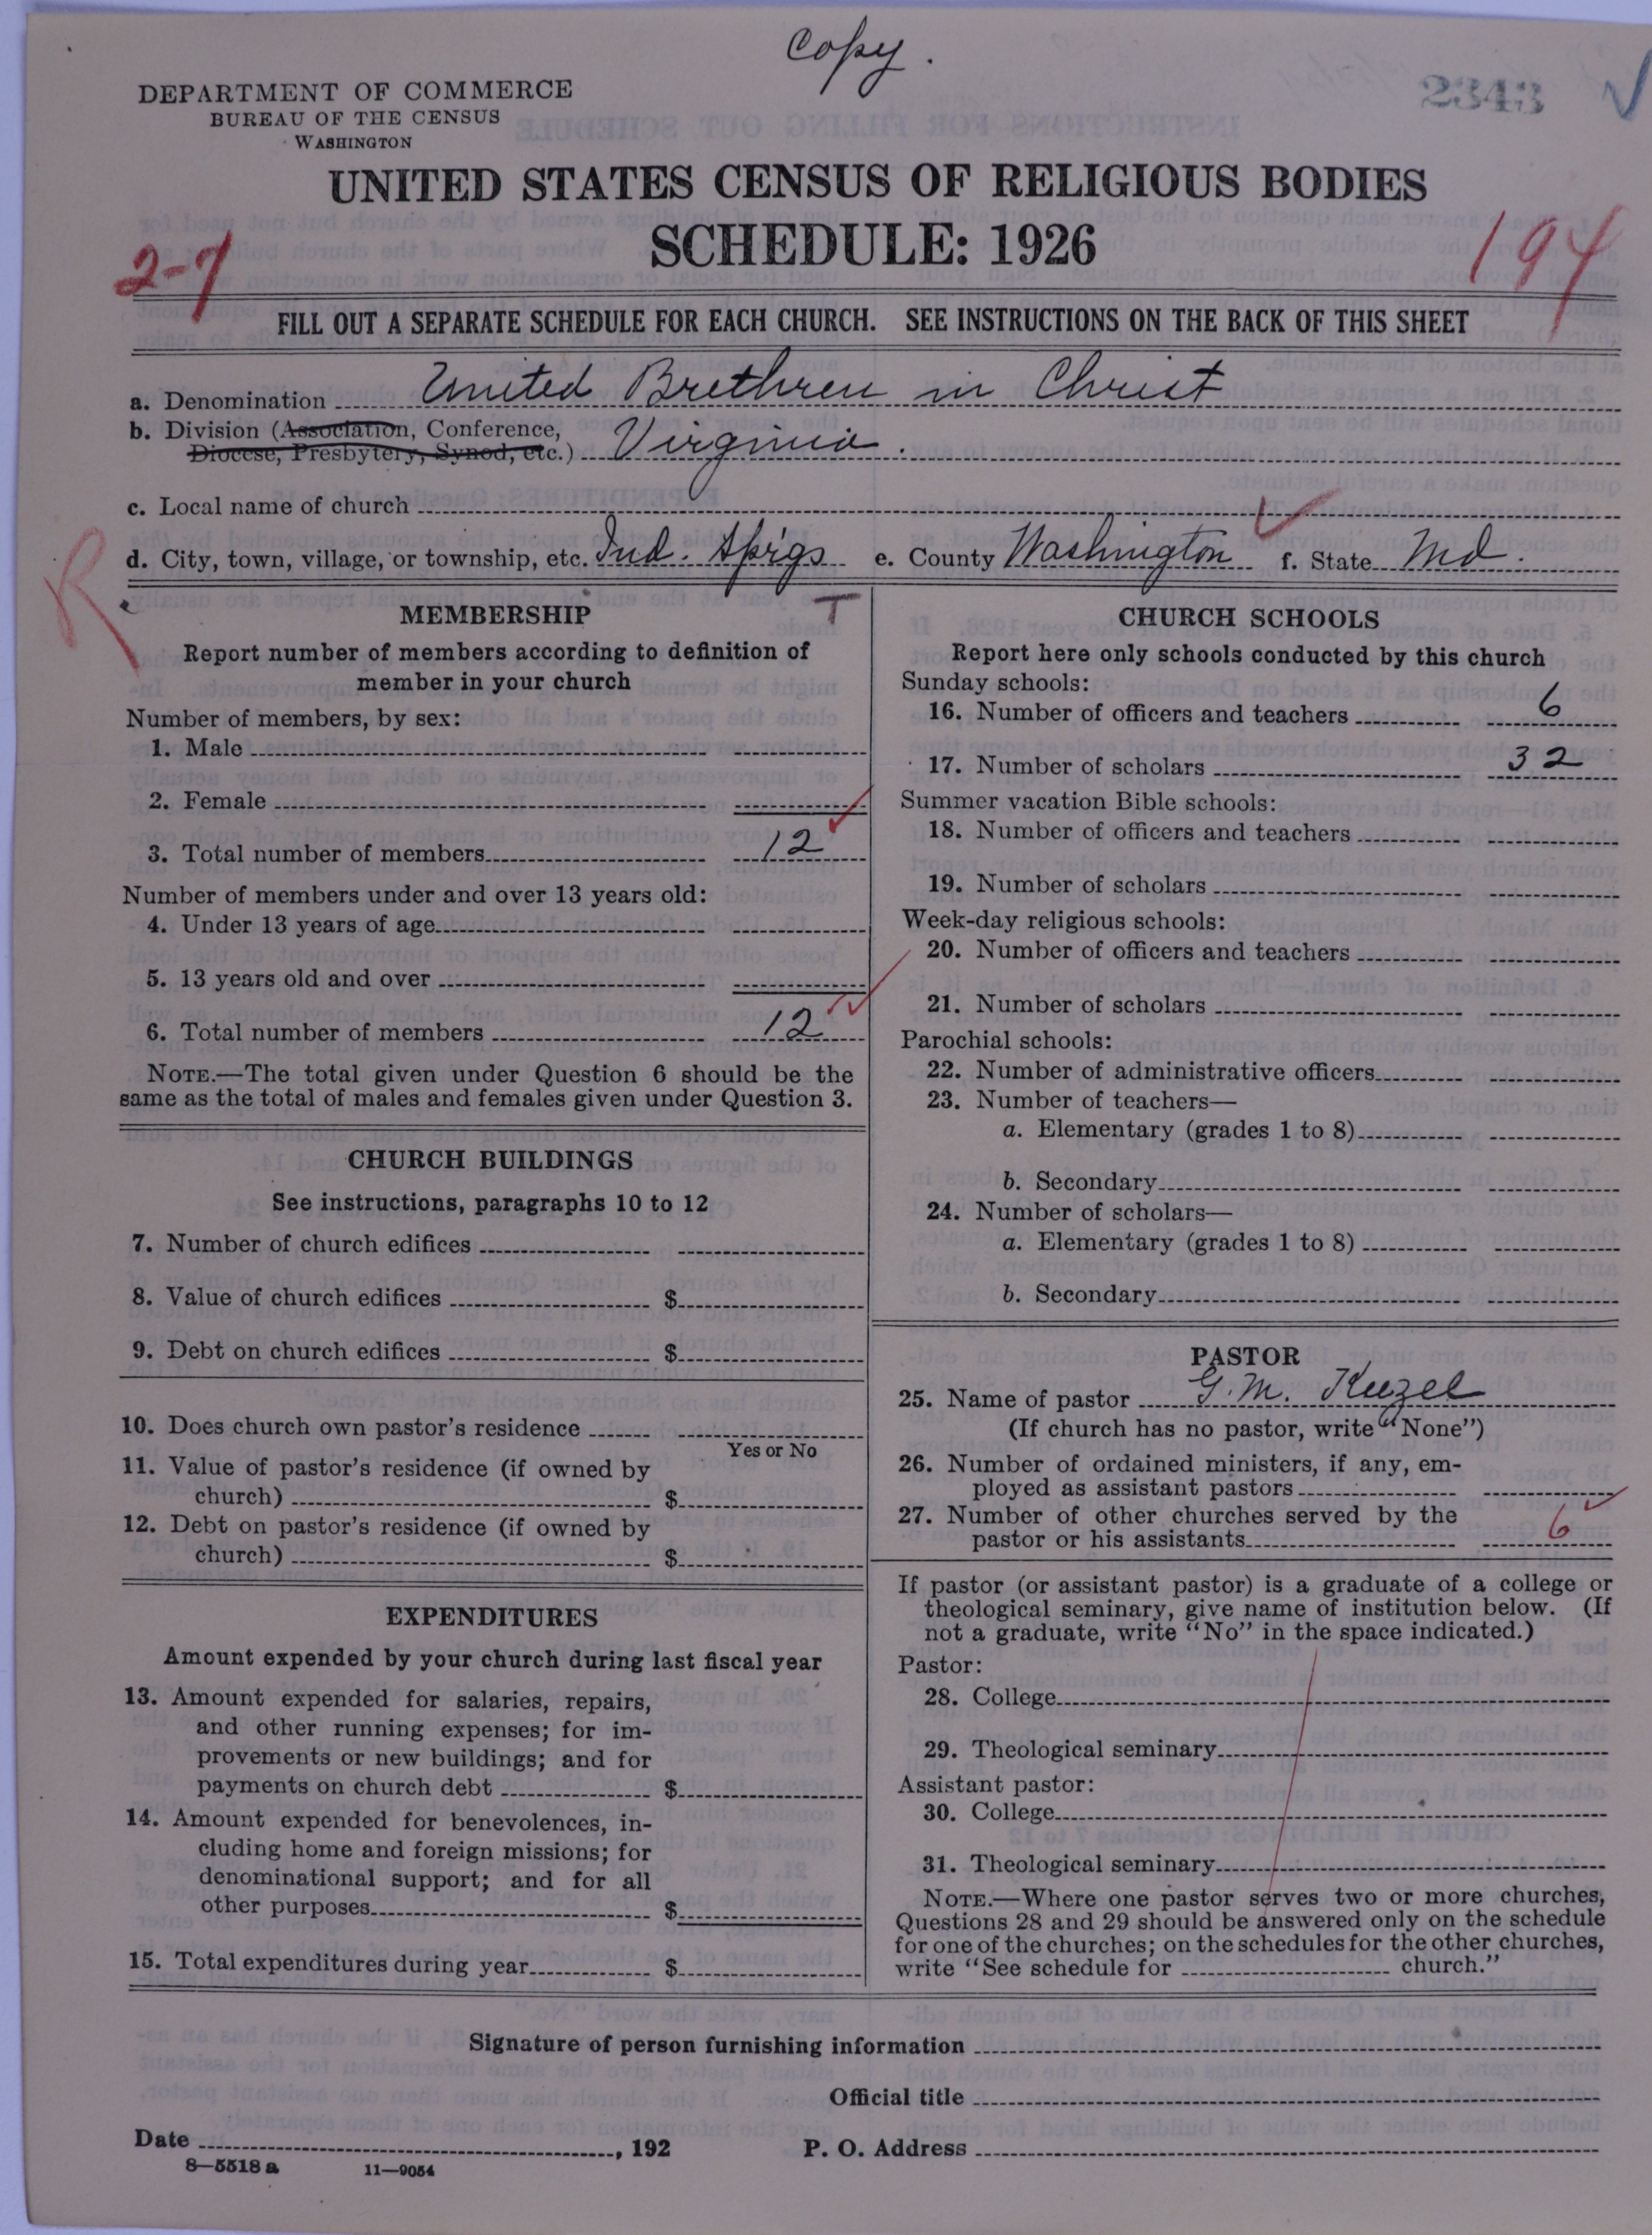 Copy.
2343
DEPARTMENT OF COMMERCE
BUREAU OF THE CENSUS
WASHINGTON
UNITED STATES CENSUS OF RELIGIOUS BODIES
SCHEDULE: 1926
2-7
194
FILL OUT A SEPARATE SCHEDULE FOR EACH CHURCH. SEE INSTRUCTIONS ON THE BACK OF THIS SHEET
a. Denomination United Brethren in Christ
b. Division (Association, Conference,
Diocese, Presbytery, Synod, etc.) Virginia.
c. Local name of church
d. City, town, village, or township, etc. Ind. Sprigs e. County Washington f. State Md.
R
T
MEMBERSHIP
Report number of members according to definition of
member in your church
Number of members, by sex:
1. Male
2. Female
3. Total number of members 12
Number of members under and over 13 years old:
4. Under 13 years of age
5. 13 years old and over
6. Total number of members 12
NOTE.—The total given under Question 6 should be the
same as the total of males and females given under Question 3.
CHURCH BUILDINGS
See instructions, paragraphs 10 to 12
7. Number of church edifices
8. Value of church edifices $
9. Debt on church edifices $
10. Does church own pastor's residence
Yes or No
11. Value of pastor's residence (if owned by
church) $
12. Debt on pastor's residence (if owned by
church) $
EXPENDITURES
Amount expended by your church during last fiscal year
13. Amount expended for salaries, repairs,
and other running expenses; for im-
provements or new buildings; and for
payments on church debt $
14. Amount expended for benevolences, in-
cluding home and foreign missions; for
denominational support; and for all
other purposes $
15. Total expenditures during year $
CHURCH SCHOOLS
Report here only schools conducted by this church
Sunday schools:
16. Number of officers and teachers 6
17. Number of scholars 32
Summer vacation Bible schools:
18. Number of officers and teachers
19. Number of scholars
Week-day religious schools:
20. Number of officers and teachers
21. Number of scholars
Parochial schools:
22. Number of administrative officers
23. Number of teachers—
a. Elementary (grades 1 to 8)
b. Secondary
24. Number of scholars—
a. Elementary (grades 1 to 8)
b. Secondary
PASTOR
25. Name of pastor G. M. Kuzel
(If church has no pastor, write "None")
26. Number of ordained ministers, if any, em-
ployed as assistant pastors
27. Number of other churches served by the
pastor or his assistants 6
If pastor (or assistant pastor) is a graduate of a college or
theological seminary, give name of institution below. (If
not a graduate, write "No" in the space indicated.)
Pastor:
28. College
29. Theological seminary
Assistant pastor:
30. College
31. Theological seminary
NOTE.—Where one pastor serves two or more churches,
Questions 28 and 29 should be answered only on the schedule
for one of the churches; on the schedules for the other churches,
write "See schedule for church."
Signature of person furnishing information
Official title
Date , 192 P. O. Address
8—5518 a 11—9054